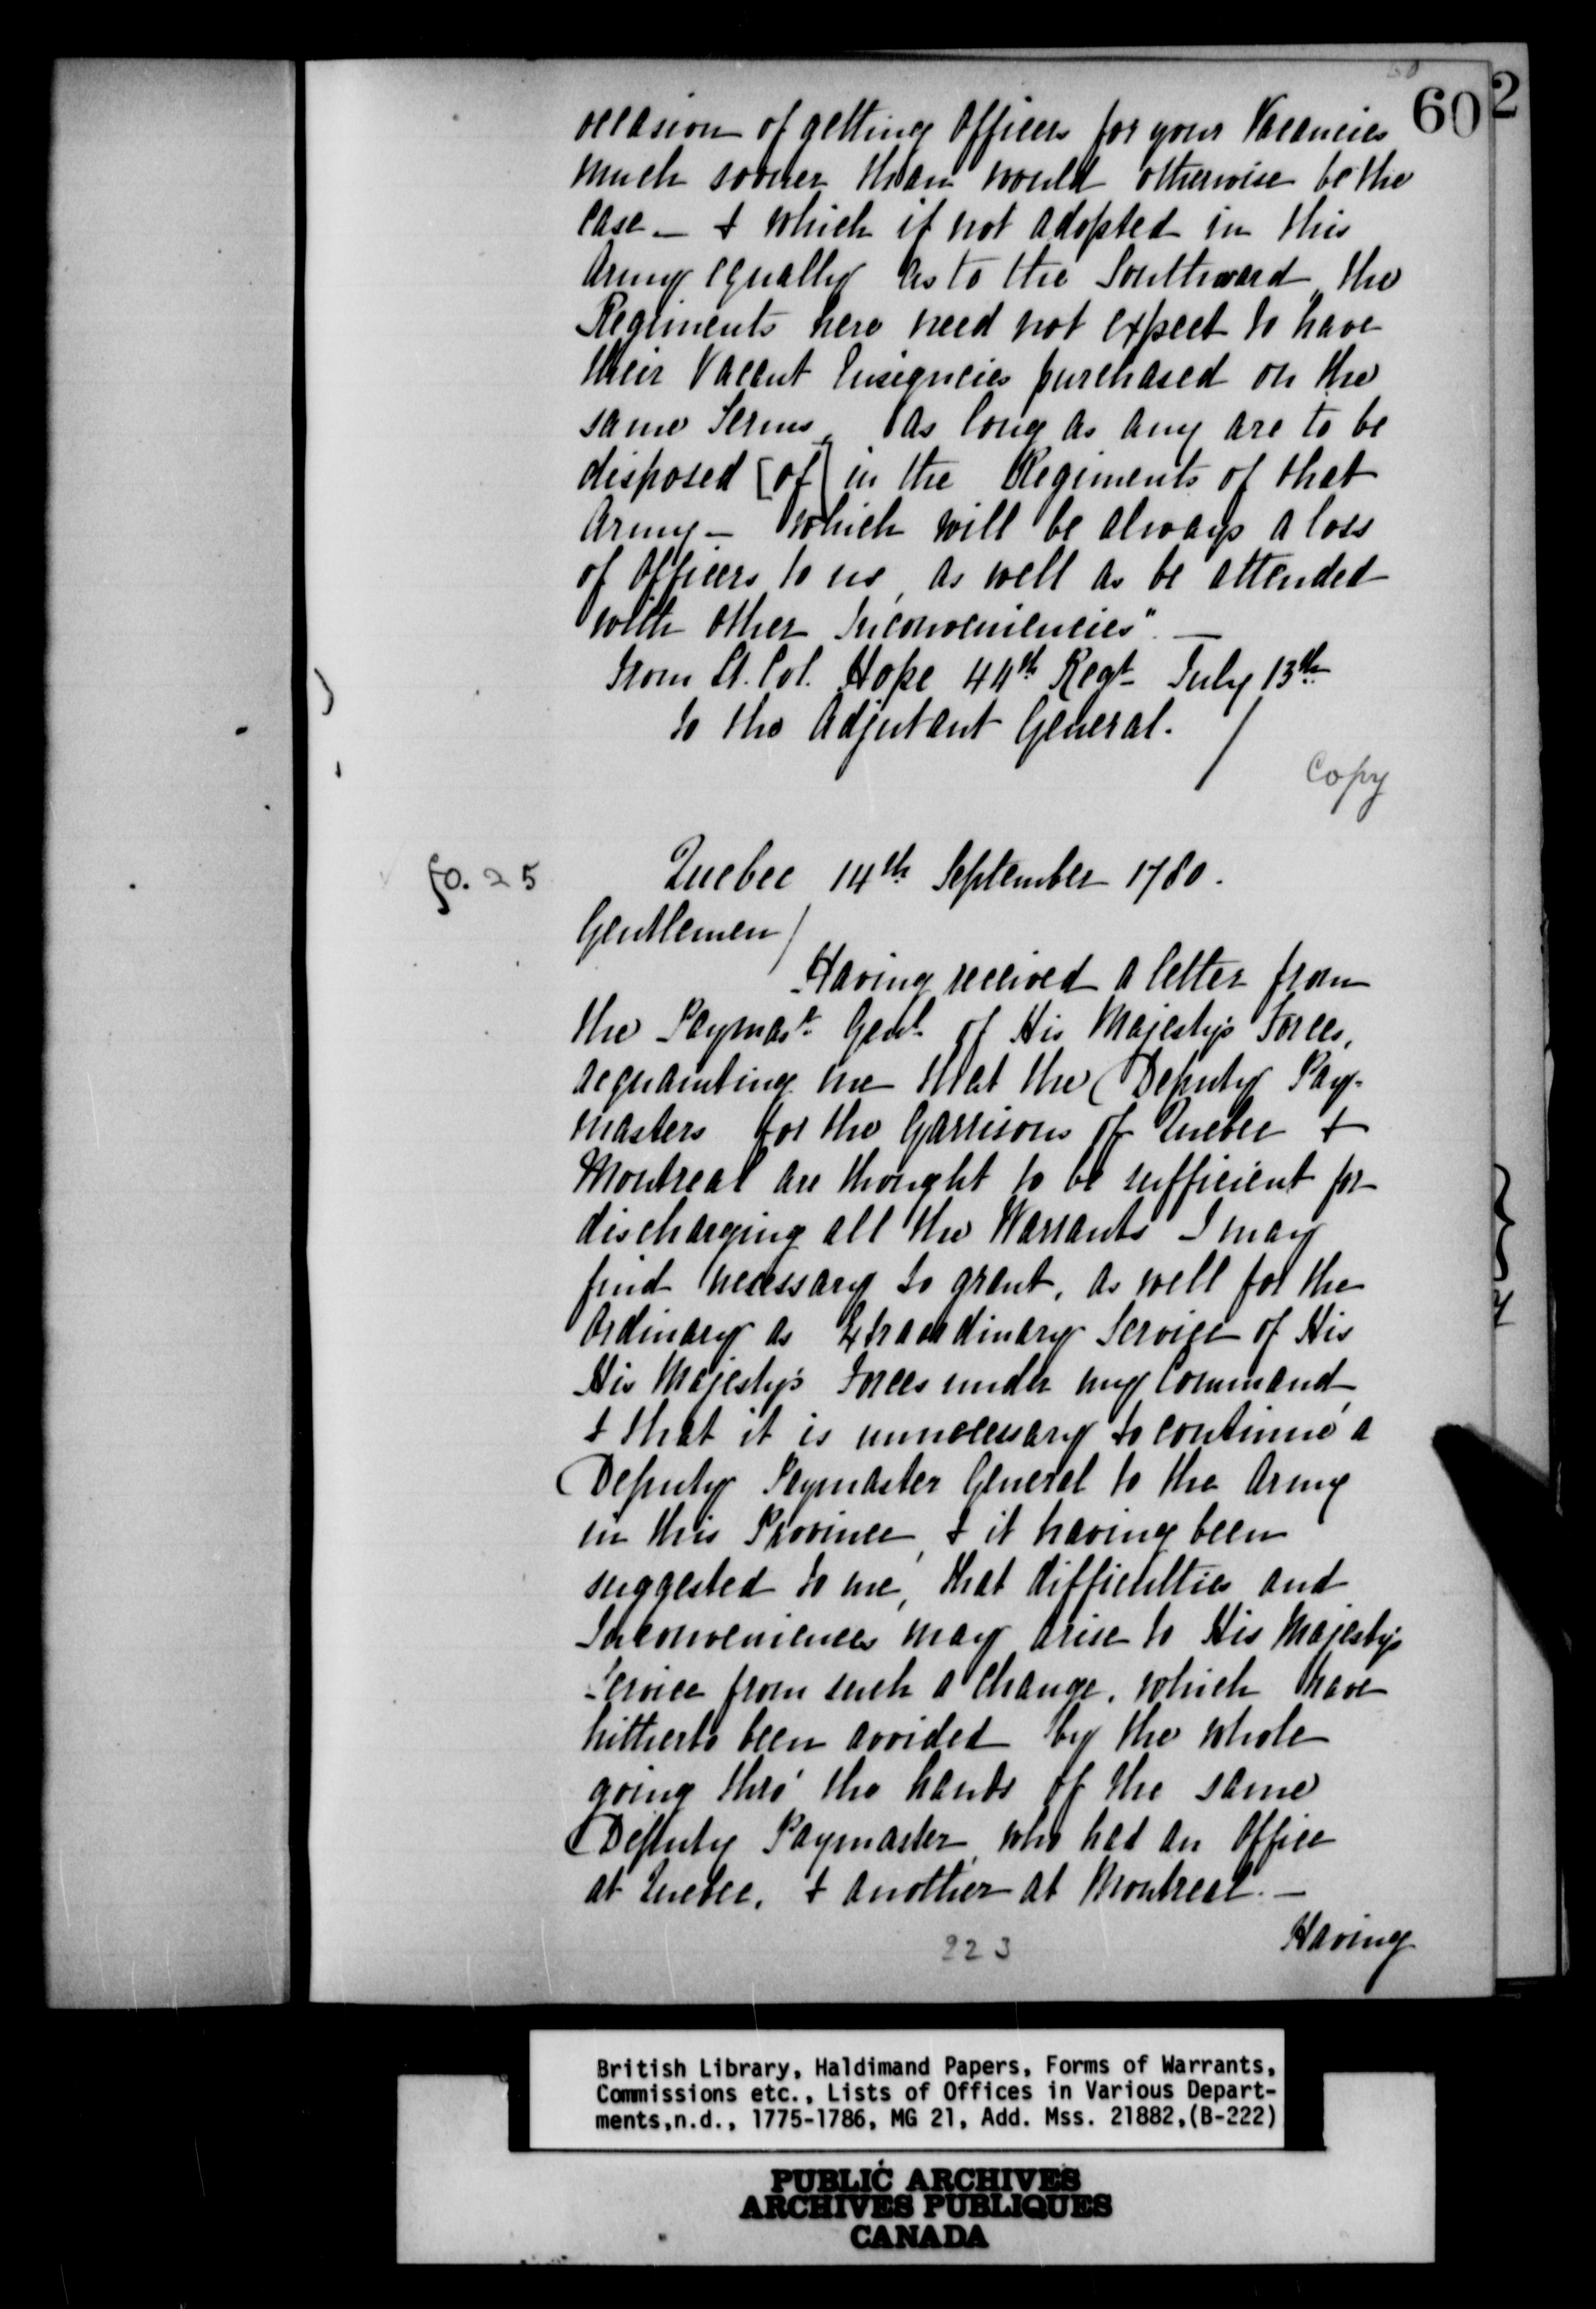 60
2
occasion of getting Officers for your Vacancies
much sooner than would otherwise be the
case — & which if not adopted in this
Army equally as to the Southward, the
Regiments here need not expect to have
their Vacant Ensigncies purchased on the
same Terms, as long as any are to be
disposed [of] in the Regiments of that
Army — which will be always a loss
of Officers to us, as well as be attended
with other Inconveniencies". —
From Lt. Col. Hope 44th Regt July 13th
to the Adjutant General. /
Copy
fo. 25
Quebec 14th September 1780.
Gentlemen /
Having received a letter from
the Paymasr Genl of His Majesty's Forces,
acquainting me that the Deputy Pay-
masters for the Garrisons of Quebec &
Montreal are thought to be sufficient for
discharging all the Warrants I may
find necessary to grant, as well for the
Ordinary as Extraordinary Service of His
His Majesty's Forces under my Command,
& that it is unnecessary to continue a
Deputy Paymaster General to the Army
in this Province, & it having been
suggested to me, that difficulties and
Inconveniences may arise to His Majesty's
Service from such a Change, which have
hitherto been avoided by the whole
going thro' the hands of the same
Deputy Paymaster, who had an Office
at Quebec, & another at Montreal. —
Having
223
British Library, Haldimand Papers, Forms of Warrants,
Commissions etc., Lists of Offices in Various Depart-
ments,n.d., 1775-1786, MG 21, Add. Mss. 21882,(B-222)
PUBLIC ARCHIVES
ARCHIVES PUBLIQUES
CANADA